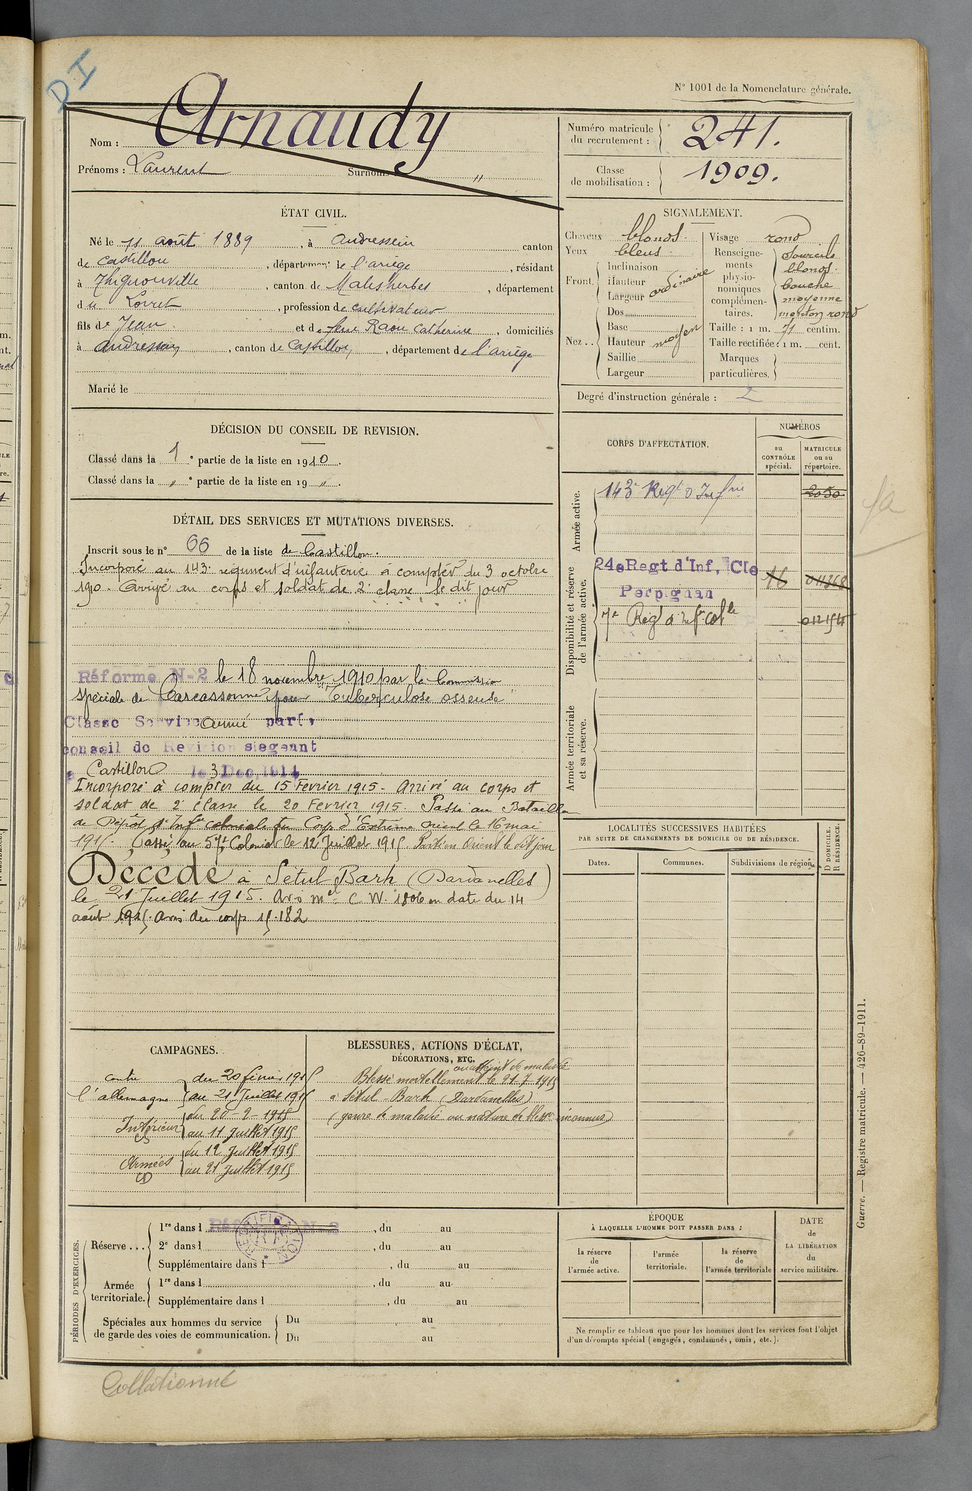 D.I
N° 1001 de la Nomenclature générale.
Nom : Arnaudy
Prénoms : Laurent Surnoms "
Numéro matricule du recrutement : 241.
Classe de mobilisation : 1909.
ÉTAT CIVIL.
Né le 11 août 1889, à Andressein canton
de Castillon, département de l'ariège, résidant
à Thignonville, canton de Malesherbes, département
du Loiret, profession de cultivateur
fils de Jean et de feue Raou Catherine, domiciliés
à Andressein, canton de Castillon, département de l'ariège
Marié le
SIGNALEMENT.
Cheveux blonds.
Yeux bleus
Front Inclinaison Hauteur Largeur ordinaire
Nez Dos Base Hauteur Saillie Largeur moyen
Visage rond
Renseignements physionomiques complémentaires. Sourcils blonds. bouche moyenne menton rond
Taille : 1 m. 71 centim.
Taille rectifiée : 1 m. cent.
Marques particulières.
Degré d'instruction générale : 2
DÉCISION DU CONSEIL DE REVISION.
Classé dans la 1e partie de la liste en 1910.
Classé dans la " e partie de la liste en 19 ".
DÉTAIL DES SERVICES ET MUTATIONS DIVERSES.
Inscrit sous le n° 66 de la liste de Castillon.
Incorporé au 143e régiment d'infanterie à compter du 3 octobre
1910. Arrivé au corps et soldat de 2e classe le dit jour
Réformé N-2 le 18 novembre 1910 par la Commission
spéciale de Carcassonne pour "Tuberculose osseuse"
Classé Service armé par le
Conseil de Revision siegeant
à Castillon le 3 Dec. 1914
Incorporé à compter du 15 Février 1915. Arrivé au corps et
soldat de 2e classe le 20 Février 1915. Passé au Bataillon
de Dépôt d'Infie coloniale du Corps d'Extrême Orient le 16 mai
1915. Passé au 57e Colonial le 12 Juillet 1915. Parti en Orient le dit jour
Décédé à Setul Barh (Dardanelles)
le 21 Juillet 1915. Avis mel C W. 1806 en date du 14
août 1915. Avis du corps 15.182
CORPS D'AFFECTATION.
NUMÉROS
au CONTRÔLE spécial.
MATRICULE ou au répertoire.
Armée active.
143e Regt d'Infrie 2050
Disponibilité et réserve de l'armée active.
24e Regt d'Inf, Cle 16 011368
Perpignan
7e Regt d'Infie colle 012154
Armée territoriale et sa réserve.
LOCALITÉS SUCCESSIVES HABITÉES
PAR SUITE DE CHANGEMENTS DE DOMICILE OU DE RÉSIDENCE.
Dates. Communes. Subdivisions de région. D DOMICILE. R RÉSIDENCE.
CAMPAGNES.
contre l'allemagne du 20 février 1915 au 21 Juillet 1915
Intérieur du 20-2-1915 au 11 juillet 1915
Armées du 12 juillet 1915 au 21 juillet 1915
BLESSURES, ACTIONS D'ÉCLAT,
DÉCORATIONS, ETC.
ou atteint de maladie
Blessé mortellement le 21.7.1915
à Setul-Barh (Dardanelles)
(genre de maladie ou nature de blessure inconnus)
PÉRIODES D'EXERCICES.
Réserve . . . 1re dans l Réformé N-2, du au
2e dans l , du au
Supplémentaire dans l , du au
Armée territoriale. 1re dans l , du au
Supplémentaire dans l , du au
Spéciales aux hommes du service de garde des voies de communication. Du au
Du au
RECTIFICATION
ÉPOQUE
À LAQUELLE L'HOMME DOIT PASSER DANS :
la réserve de l'armée active.
l'armée territoriale.
la réserve de l'armée territoriale
DATE de LA LIBÉRATION du service militaire.
Ne remplir ce tableau que pour les hommes dont les services font l'objet
d'un décompte spécial (engagés, condamnés, omis, etc.).
Guerre. — Registre matricule. — 426-89-1911.
Collationné